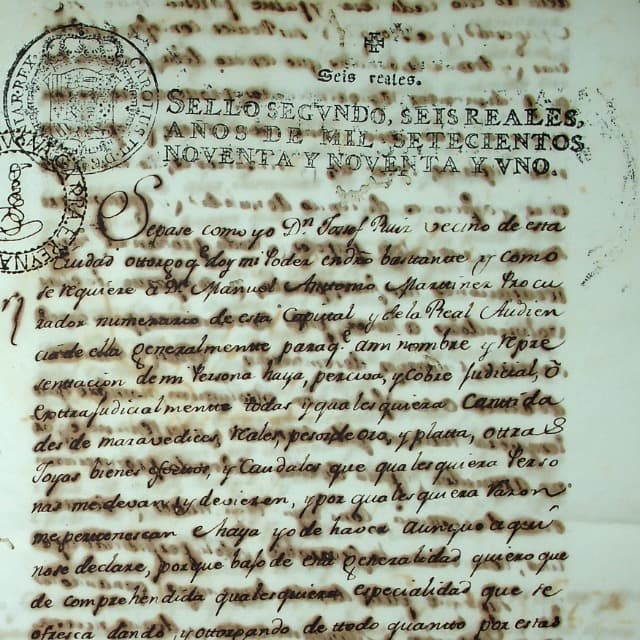 Seis reales.
SELLO SEGVNDO, SEIS REALES,
AÑOS DE MIL SETECIENTOS
NOVENTA Y NOVENTA Y VNO.
Sepase como yo Dn. Josef Ruiz vecino de esta
Ciudad otorgo q.e doy mi Poder cumplido bastante y como
se requiere á Dn. Manuel Antonio Martinez Procu
rador numerario de esta Capital y de la Real Audien
cia de ella generalmente paraq.e ami nombre y repre
sentacion de mi Persona haya, perciva, y cobre Judicial, ó
extrajudicialmente todas y qualesquiera Cantida
des de maravedices, reales, pesos de oro, y platta, ottras
Joyas bienes efectos, y Caudales que qualesquiera Perso
nas me devan y devieren, y por qualesquiera razon
me pertenescan e haya yo de haver aunque aqui
no se declare, porque bajo de esta generalidad quiero que
de comprehendida qualesquiera especialidad que se
ofresca dando, y ottorgando de ttodo quantto por estas